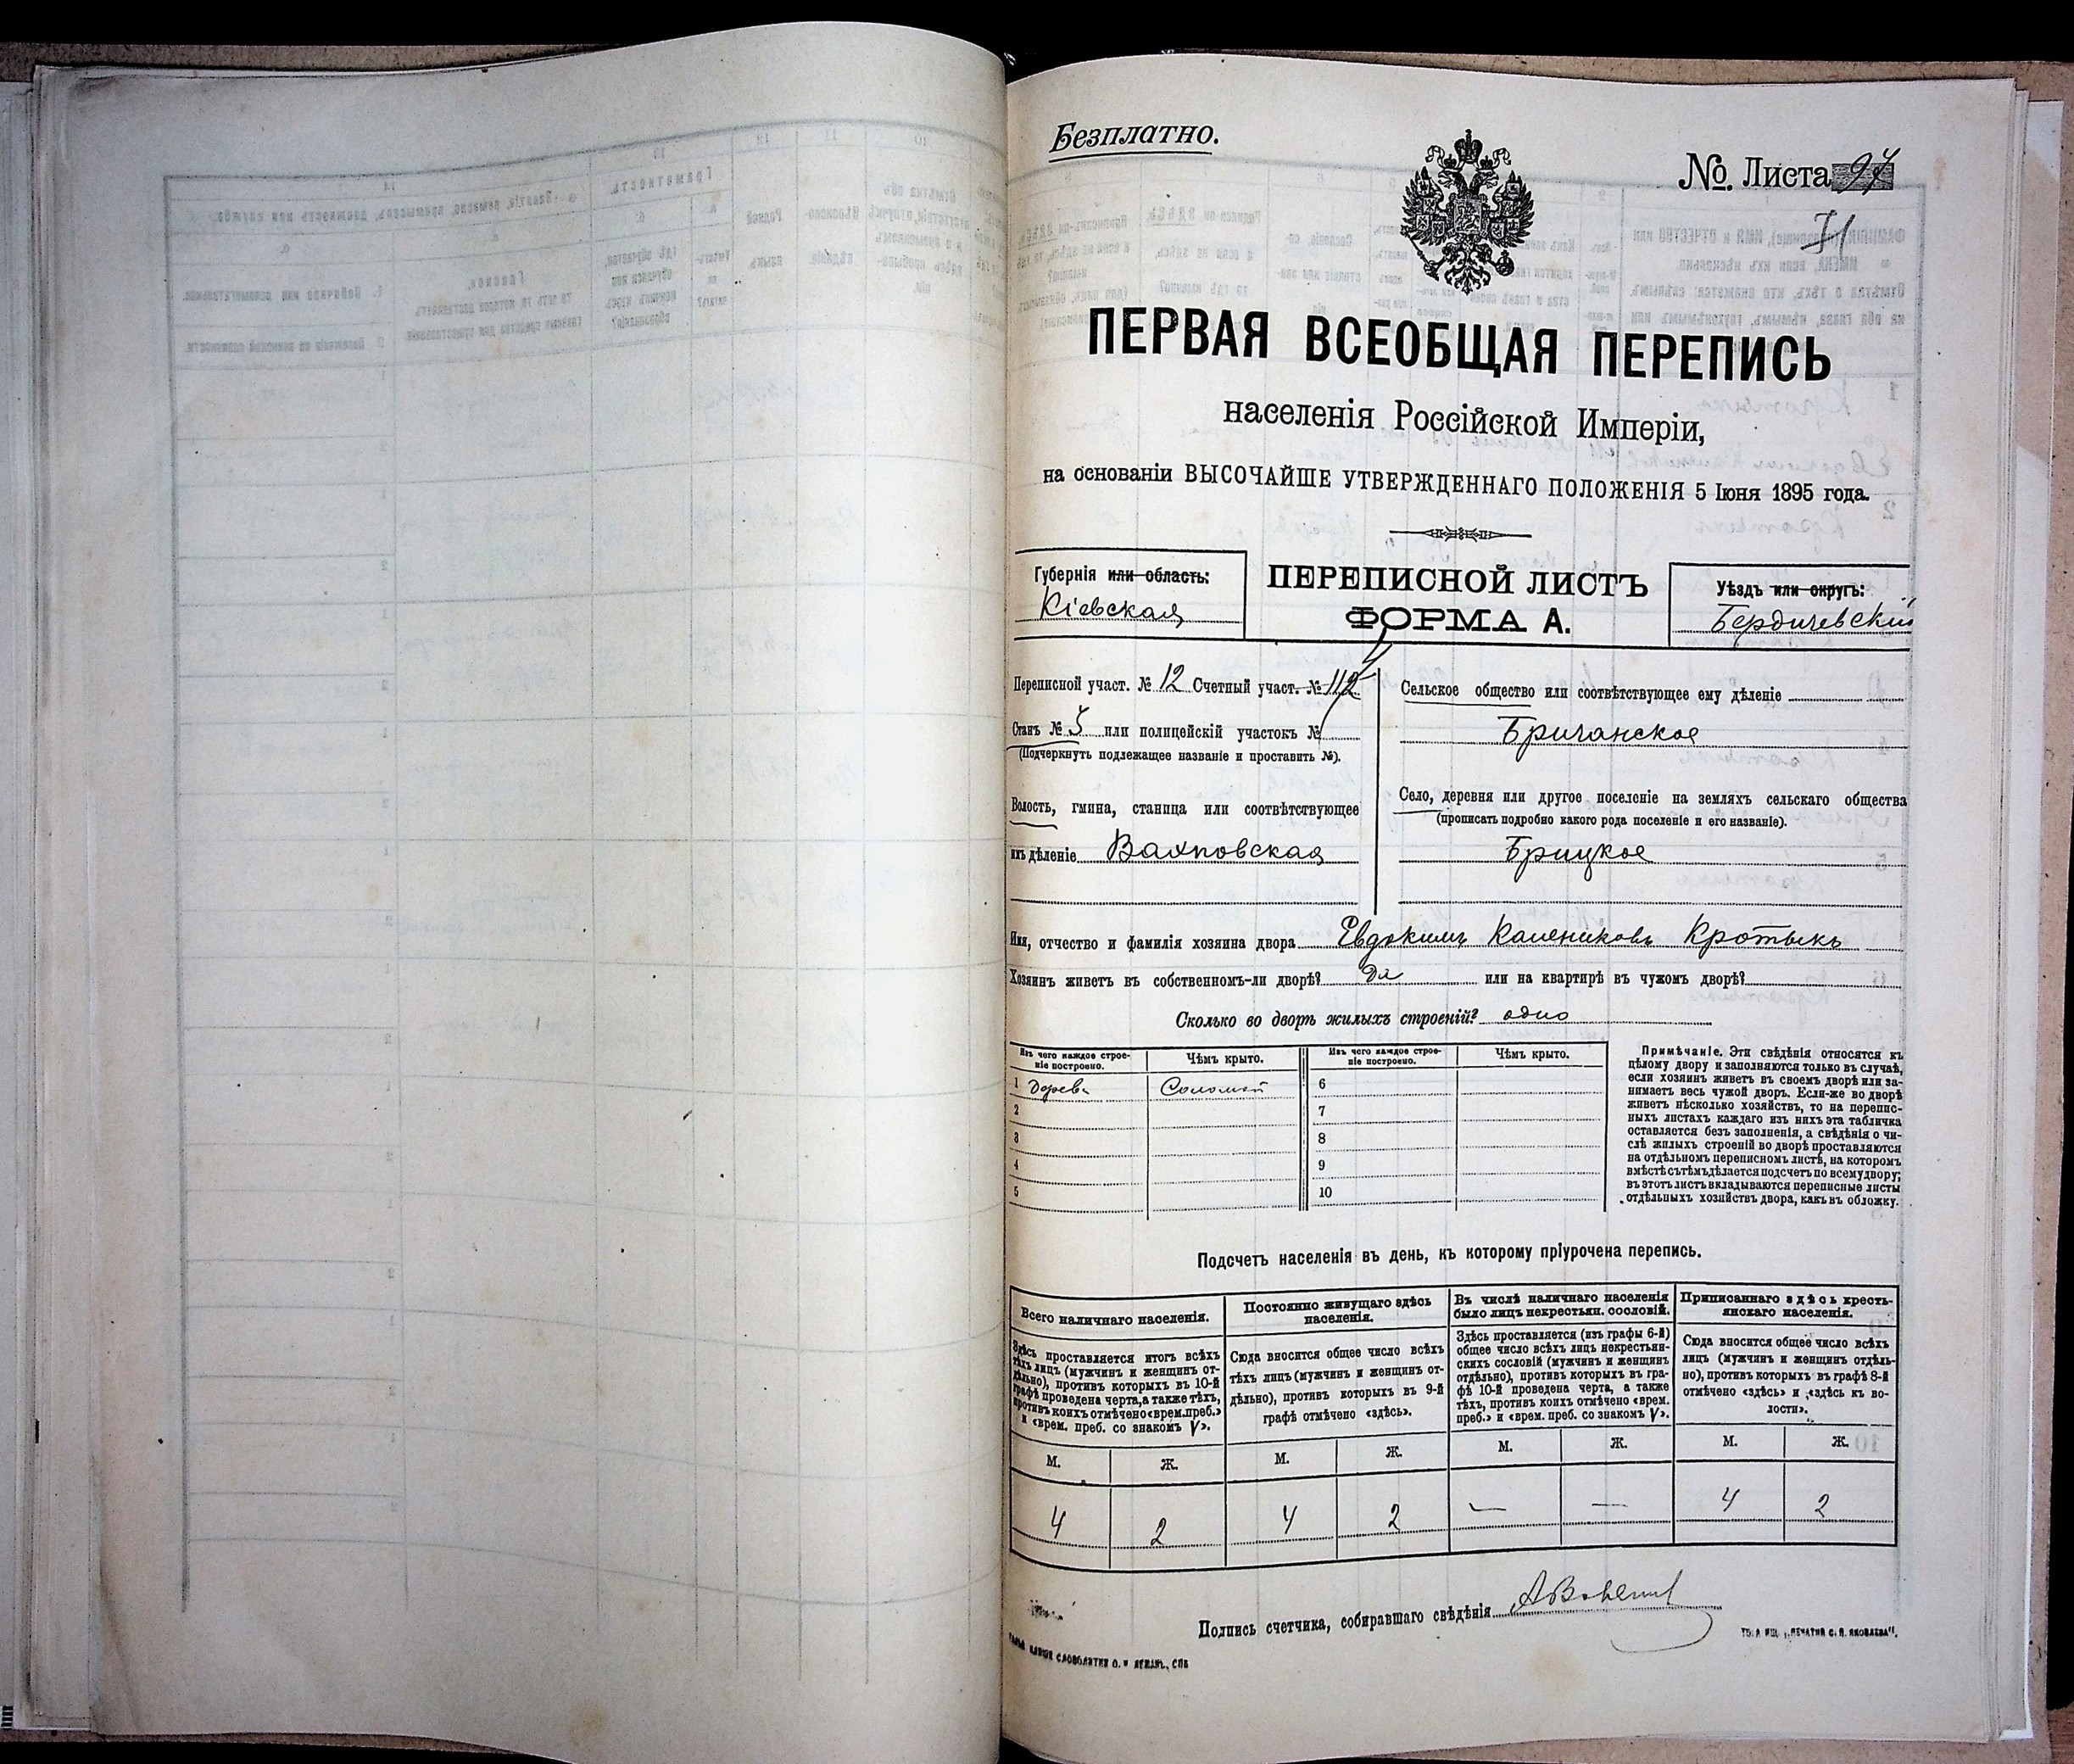 Безплатно.
№. Листа 94
ПЕРВАЯ ВСЕОБЩАЯ ПЕРЕПИСЬ
населенія Россійской Имперіи,
на основаніи ВЫСОЧАЙШЕ УТВЕРЖДЕННАГО ПОЛОЖЕНІЯ 5 Іюня 1895 года.
Губернія или область:
Кіевская
ПЕРЕПИСНОЙ ЛИСТЪ
ФОРМА А.
Уѣздъ или округъ:
Бердичевскій
Переписной участ. № 12 Счетный участ. №
Станъ № 5 или полицейскій участокъ №
(Подчеркнуть подлежащее названіе и проставить №).
Волость, гмина, станица или соотвѣтствующее
имъ дѣленіе Вахновская
Сельское общество или соотвѣтствующее ему дѣленіе
Бричанское
Село, деревня или другое поселеніе на земляхъ сельскаго общества
(прописать подробно какого рода поселеніе и его названіе).
Брицкое
Имя, отчество и фамилія хозяина двора Евдокимъ Калениковъ Кротыкъ
Хозяинъ живетъ въ собственномъ-ли дворѣ? Да или на квартирѣ въ чужомъ дворѣ?
Сколько во дворѣ жилыхъ строеній? одно
Изъ чего каждое строе-
ніе построено.
Чѣмъ крыто.
Изъ чего каждое строе-
ніе построено.
Чѣмъ крыто.
1 Дерева Соломой 6
2 7
3 8
4 9
5 10
Примѣчаніе. Эти свѣдѣнія относятся къ
цѣлому двору и заполняются только въ случаѣ,
если хозяинъ живетъ въ своемъ дворѣ или за-
нимаетъ весь чужой дворъ. Если-же во дворѣ
живетъ нѣсколько хозяйствъ, то на перепис-
ныхъ листахъ каждаго изъ нихъ эта табличка
оставляется безъ заполненія, а свѣдѣнія о чи-
слѣ жилыхъ строеній во дворѣ проставляются
на отдѣльномъ переписномъ листѣ, на которомъ
вмѣстѣ съ тѣмъ дѣлается подсчетъ по всему двору;
въ этотъ листъ вкладываются переписные листы
отдѣльныхъ хозяйствъ двора, какъ въ обложку.
Подсчетъ населенія въ день, къ которому пріурочена перепись.
Всего наличнаго населенія.
Здѣсь проставляется итогъ всѣхъ
тѣхъ лицъ (мужчинъ и женщинъ от-
дѣльно), противъ которыхъ въ 10-й
графѣ проведена черта, а также тѣхъ,
противъ коихъ отмѣчено «врем. преб.»
и «врем. преб. со знакомъ V».
Постоянно живущаго здѣсь
населенія.
Сюда вносится общее число всѣхъ
тѣхъ лицъ (мужчинъ и женщинъ от-
дѣльно), противъ которыхъ въ 9-й
графѣ отмѣчено «здѣсь».
Въ числѣ наличнаго населенія
было лицъ некрестьян. сословій.
Здѣсь проставляется (изъ графы 6-й)
общее число всѣхъ лицъ некрестьян-
скихъ сословій (мужчинъ и женщинъ
отдѣльно), противъ которыхъ въ гра-
фѣ 10-й проведена черта, а также
тѣхъ, противъ коихъ отмѣчено «врем.
преб.» и «врем. преб. со знакомъ V».
Приписаннаго здѣсь кресть-
янскаго населенія.
Сюда вносится общее число всѣхъ
лицъ (мужчинъ и женщинъ отдѣль-
но), противъ которыхъ въ графѣ 8-й
отмѣчено «здѣсь» и «здѣсь къ во-
лости».
М. Ж. М. Ж. М. Ж. М. Ж.
4 2 4 2 — — 4 2
Подпись счетчика, собиравшаго свѣдѣнія